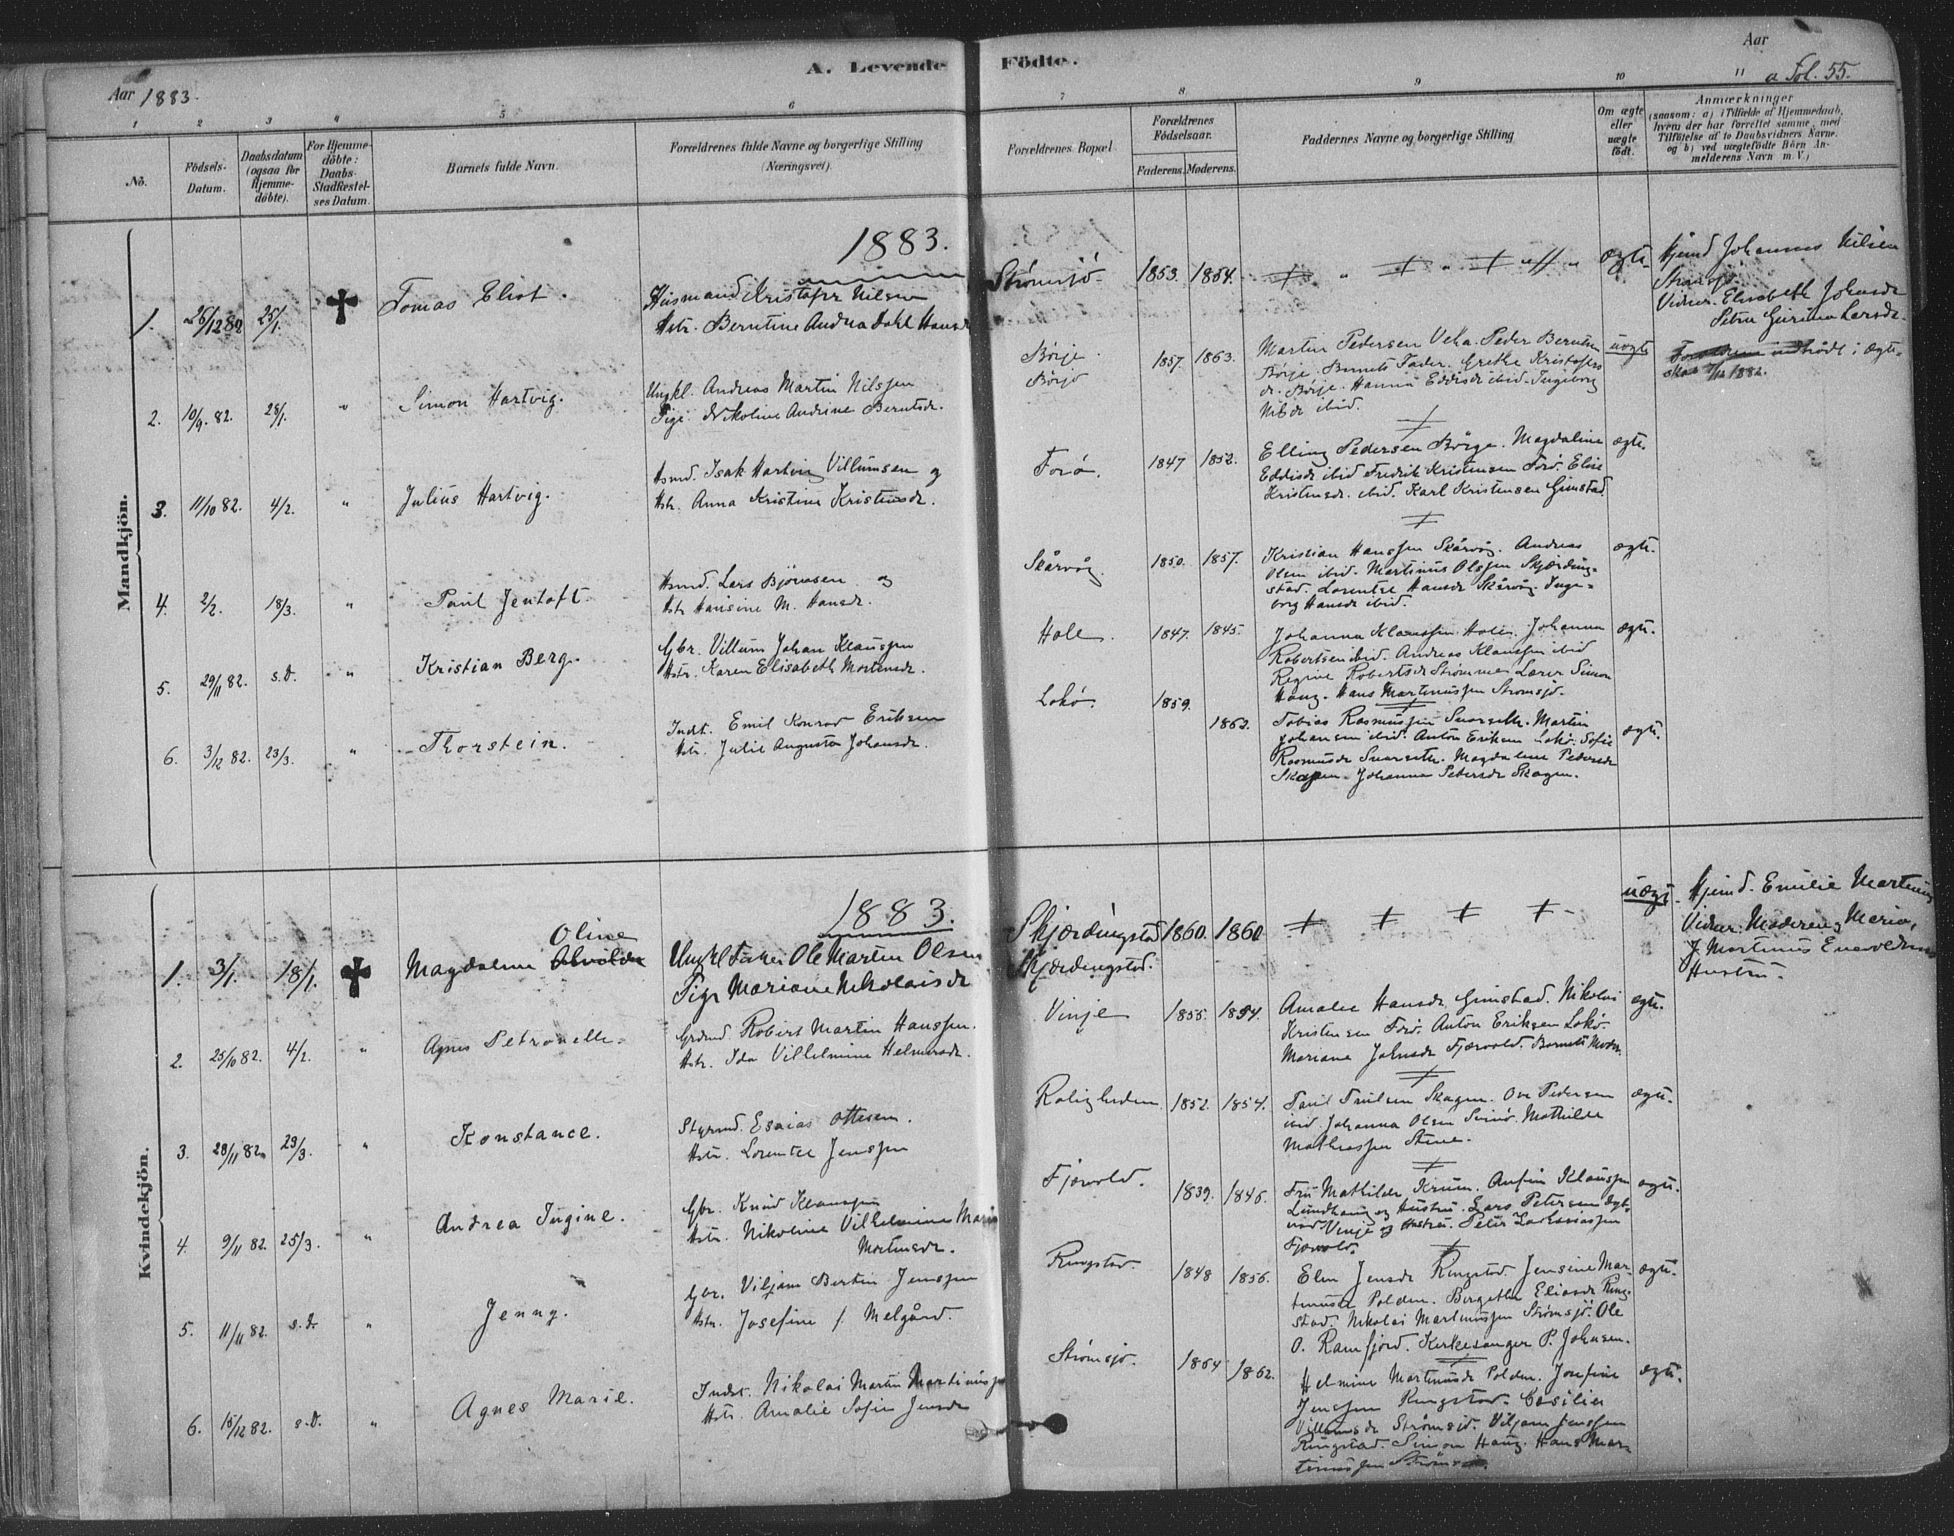 A. Levende Födte.
Aar 1883.
Aar
a Fol. 55.
1 2 3 4 5 6 7 8 9 10 11
No.
Födsels-Datum.
Daabsdatum (ogsaa for Hjemmedöbte).
For Hjemmedöbte: Daabs-Stadfæstelses Datum.
Barnets fulde Navn.
Forældrenes fulde Navne og borgerlige Stilling (Næringsvei).
Forældrenes Bopæl.
Forældrenes Födselsaar.
Faderens. Moderens.
Faddernes Navne og borgerlige Stilling
Om ægte eller uægte født.
Anmærkninger
(saasom: a) i Tilfælde af Hjemmedaab, hvem der har forrettet samme, med Tilföielse af to Daabsvidners Navne. og b) ved uægtefödte Börn Anmelderens Navn m. V.)
Mandkjön.
1883.
1. 26/12 82 25/1. ✝ Tomas Eliot.
Husmand Kristofer Nilsen
Hstr. Berntine Andrea Dahl Hansd
Strömsjö 1853. 1854. ægte.
Hjemd Johannes Nilsen
Strömsjö
Vidner. Elisabeth Johansd
Petra Gurina Larsdr.
2. 10/9. 82. 28/1. " Simon Hartvig.
Ungkl. Andreas Martin Nilssen
Pige Nikoline Andrine Berntsdr.
Börje.
Börjö 1857. 1863.
Martin Pedersen Veha. Peder Berntsen
Börje. Barnets Fader. Grethe Kristofers
dr. Börje. Hanna Eddisdr ibid. Ingeborg
Nilsdr ibid.
uægte
3. 11/10 82. 4/2. " Julius Hartvig.
Hsmd. Isak Hartvig Villumsen og
Hstr. Anna Kristine Kristensdr.
Forö. 1847 1852.
Elling Pedersen Börge. Magdaline
Eddisdr ibid Fredrik Kristensen Forö. Elise
Kristensdr. ibid. Karl Kristensen Gimstad.
ægte.
4. 2/2. 18/3. " Paul Jentoft.
Hsmd. Lars Björnsen og
Hstr Hansine M. Hansdr.
Skårvåg 1850. 1857.
Kristian Hanssen Skårvåg. Andreas
Olsen ibid. Martinus Olssen Skjerding-
stad. Lorentse Hansdr Skårvåg Inge-
borg Hansdr ibid.
ægte.
5. 29/11 82. s.D. " Kristian Berg.
Gbr. Villum Johan Klaussen
Hstr. Karen Elisabeth Mortensdr.
Hole. 1847. 1845.
Johanna Klaussen Hole. Johanna
Robertsen ibid. Andreas Klaussen ibid
Regine Robertsdr Strömme Lærer Simon
Haug. Hans Martinussen Strömsjö.
ægte.
6. 3/12 82. 23/3. " Thorstein.
Indt. Emil Konrad Eriksen
Hstr. Julie Augusta Johansdr.
Lökö. 1859. 1862.
Tobias Rasmussen Svarseth. Martin
Johansen ibid. Anton Eriksen Lökö. Sofie
Rasmusdr Svarseth. Magdalene Pedersdr
Skagen. Johanna Petersdr Skagen.
ægte.
Kvindekjön.
1883.
1. 3/1. 18/1. ✝ Magdalene Oline
Ungkl Fisker Ole Martin Olsen
Pige Mariane Nikolaisdr
Skjerdingstad
Skjerdingstad. 1860. 1860
uægt.
Hjemd. Emilie Martinus
Vidner. Moderen, Maria,
J. Martinus Enevoldsens
Hustru.
2. 25/10 82. 4/2. " Agnes Petronelle.
Grdmd. Robert Martin Hanssen.
Hstr. Ida Vilhelmine Helmersdr.
Vinje 1855. 1854.
Amalie Hansdr Gimstad. Nikolai
Kristensen Forö. Anton Eriksen Lökö.
Mariane Johnsdr Fjærvold. Barnets Moder.
ægte.
3. 28/11 82. 23/3. " Konstance.
Styrmd. Esaias Ottesen.
Hstr. Lorentse Jenssen
Roligheden 1852. 1854.
Paul Paulsen Skagen. Ove Pedersen
ibid. Johanna Olsen Svinö. Mathilde
Mathiassen Stene.
ægte.
4. 9/11 82. 25/3. " Andrea Jugine.
Gbr. Knud Klaussen
Hstr. Nikoline Vilhelmine Marie
Mortensdr.
Fjærvold. 1839. 1846.
Fru Mathilde Krum. Anfin Klaussen
Lundhaug og Hustru. Lars Petersen
Vinje og Hustru. Peter Zachariassen
Fjærvold.
ægte.
5. 11/11 82. s.D. " Jenny.
Gbr. Viljam Bertin Jenssen
Hstr. Josefine f. Melgård.
Ringstad. 1848 1856.
Elen Jensdr Ringstad. Jensine Mar-
tinusdr Polden. Bergethe Eliasdr Ring-
stad. Nikolai Martinussen Strömsjö. Ole
O. Ramfjord. Kirkesanger P. Johnsen.
ægte.
6. 15/12 82. s.D. " Agnes Marie.
Indst. Nikolai Martin Martinussen
Hstr. Amalie Sofie Jensdr
Strömsjö. 1864 1862.
Helmine Martinusdr Polden. Josefine
Jenssen Ringstad. Cesilie
Villumsdr Strömsjö. Viljam Jenssen
Ringstad. Simon Haug. Hans Mar-
tinussen Strömsjö.
ægte.